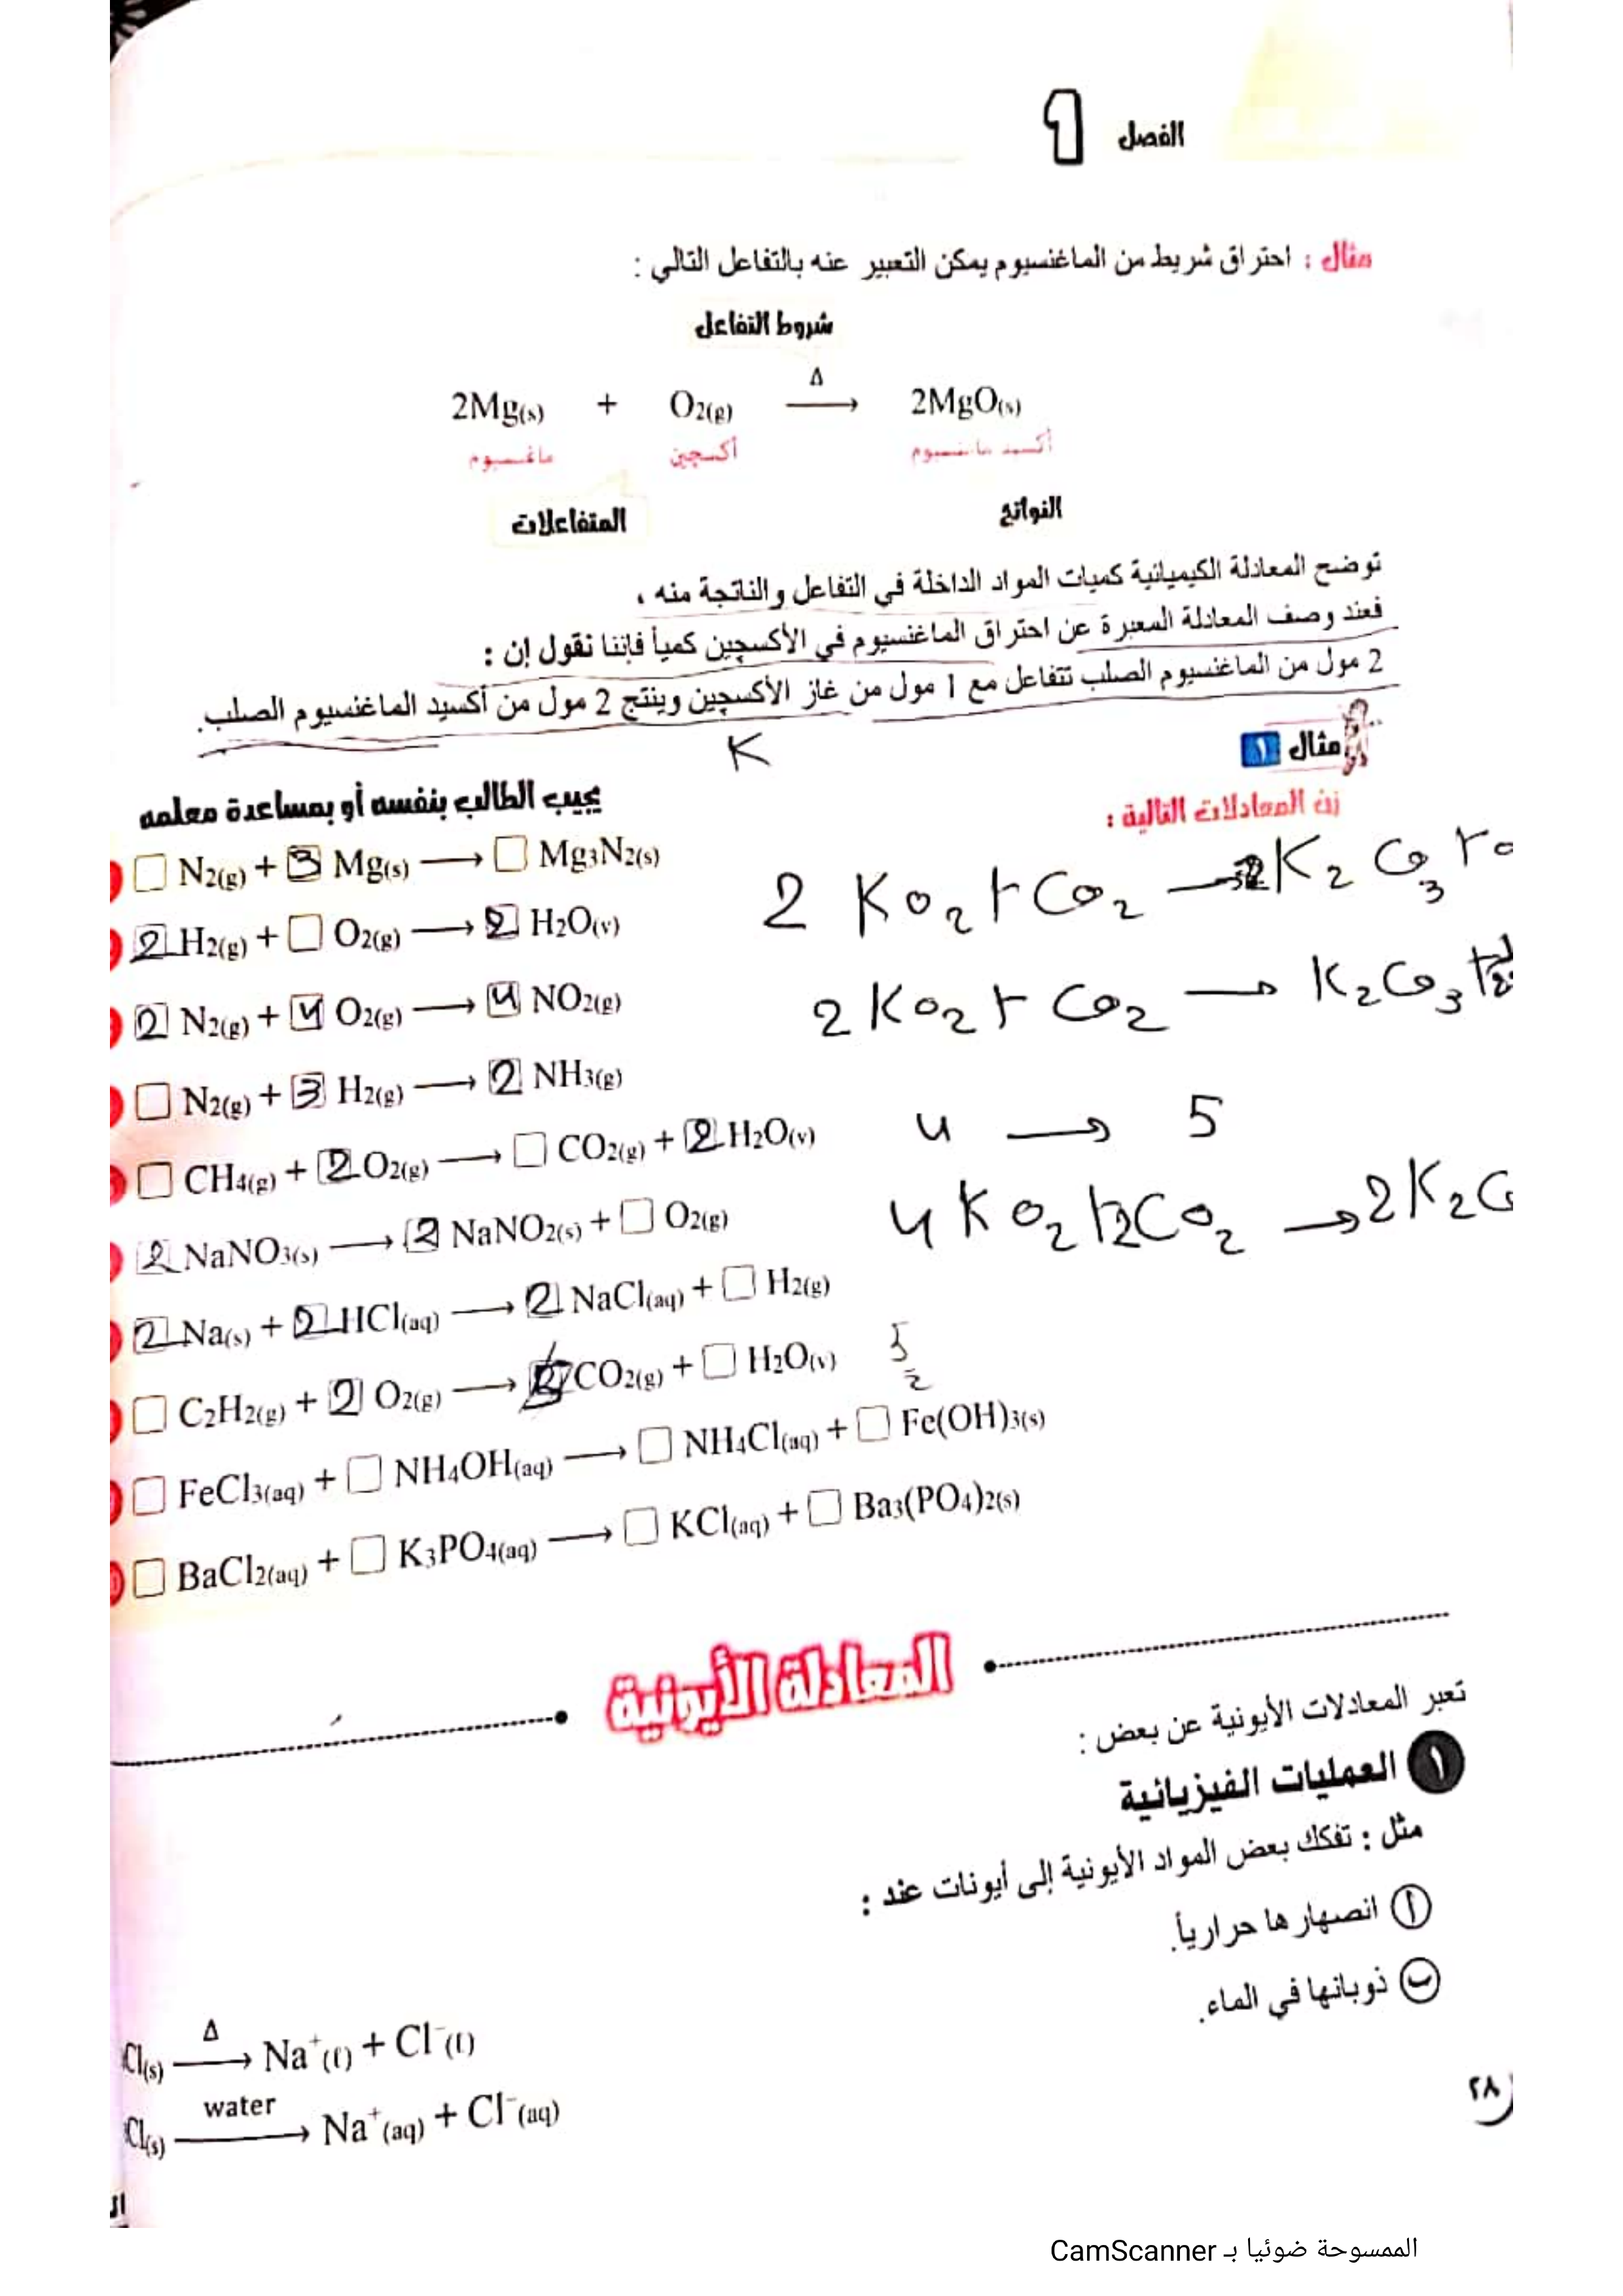 الفصل 1
مثال : احتراق شريط من الماغنسيوم يمكن التعبير عنه بالتفاعل التالي :
شروط التفاعل
Δ
2Mg(s) + O2(g) ⟶ 2MgO(s)
ماغنسيوم أكسچين أكسيد ماغنسيوم
المتفاعلات النواتج
توضح المعادلة الكيميائية كميات المواد الداخلة في التفاعل والناتجة منه ،
فعند وصف المعادلة المعبرة عن احتراق الماغنسيوم في الأكسچين كمياً فإننا نقول إن :
2 مول من الماغنسيوم الصلب تتفاعل مع 1 مول من غاز الأكسچين وينتج 2 مول من أكسيد الماغنسيوم الصلب.
K
مثال ١
زن المعادلات التالية :
يجيب الطالب بنفسه أو بمساعدة معلمه
□ N2(g) + 3 Mg(s) ⟶ □ Mg3N2(s)
2 H2(g) + □ O2(g) ⟶ 2 H2O(v)
2 N2(g) + 4 O2(g) ⟶ 4 NO2(g)
□ N2(g) + 3 H2(g) ⟶ 2 NH3(g)
□ CH4(g) + 2 O2(g) ⟶ □ CO2(g) + 2 H2O(v)
2 NaNO3(s) ⟶ 2 NaNO2(s) + □ O2(g)
2 Na(s) + 2 HCl(aq) ⟶ 2 NaCl(aq) + □ H2(g)
□ C2H2(g) + 2 O2(g) ⟶ CO2(g) + □ H2O(v)
□ FeCl3(aq) + □ NH4OH(aq) ⟶ □ NH4Cl(aq) + □ Fe(OH)3(s)
□ BaCl2(aq) + □ K3PO4(aq) ⟶ □ KCl(aq) + □ Ba3(PO4)2(s)
2 KO2 + CO2 ⟶ K2CO3 + O
2 KO2 + CO2 ⟶ K2CO3 +
4 ⟶ 5
4 KO2 + 2CO2 ⟶ 2K2C
5
2
المعادلة الأيونية
تعبر المعادلات الأيونية عن بعض :
١ العمليات الفيزيائية
مثل : تفكك بعض المواد الأيونية إلى أيونات عند :
أ انصهارها حرارياً.
ب ذوبانها في الماء.
Δ
Cl(s) ⟶ Na+(l) + Cl-(l)
water
Cl(s) ⟶ Na+(aq) + Cl-(aq)
٢٨
الممسوحة ضوئيا بـ CamScanner